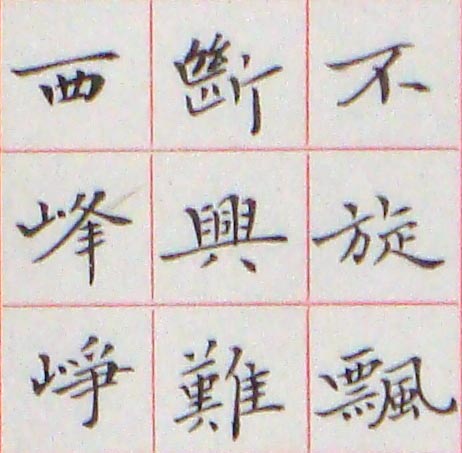 不旋飄
斷興難
西峰崢